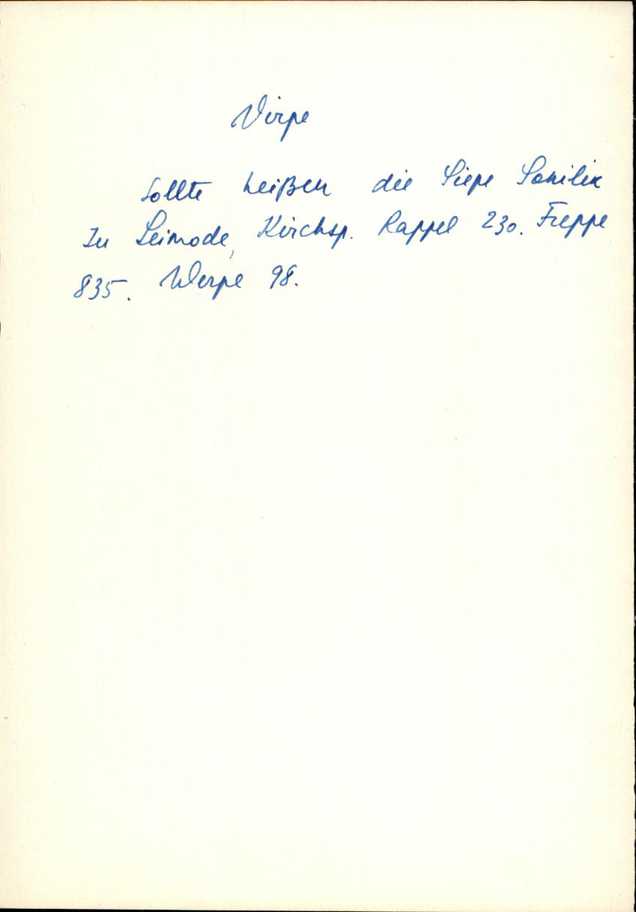 Virpe
sollte heißen die Siepe
In Leimode, Kirchsp. Rappel 230. Freppe
835. Werpe 98.